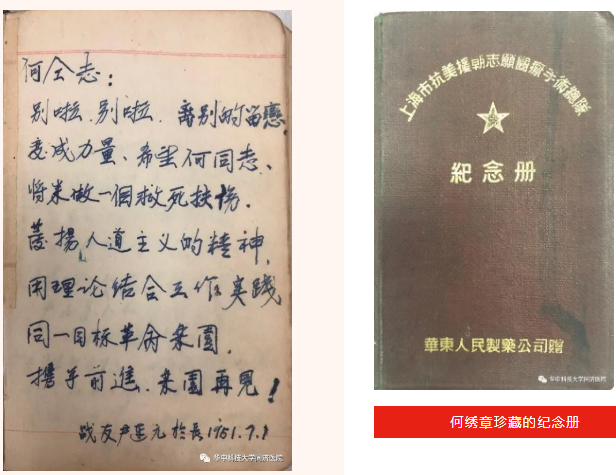 何仝志：
别啦、别啦、离别的留恋
变成力量、希望何同志、
将来做一個救死扶傷、
發揚人道主义的精神、
用理论结合工作实践
同一目标革命 園、
携手前進、 園再見！
战友尹 於長1951.7.
华中科技大学同济医院
上海市抗美援朝志願醫療手術總隊
紀念册
華東人民製藥公司贈
华中科技大学同济医院
何绣章珍藏的纪念册